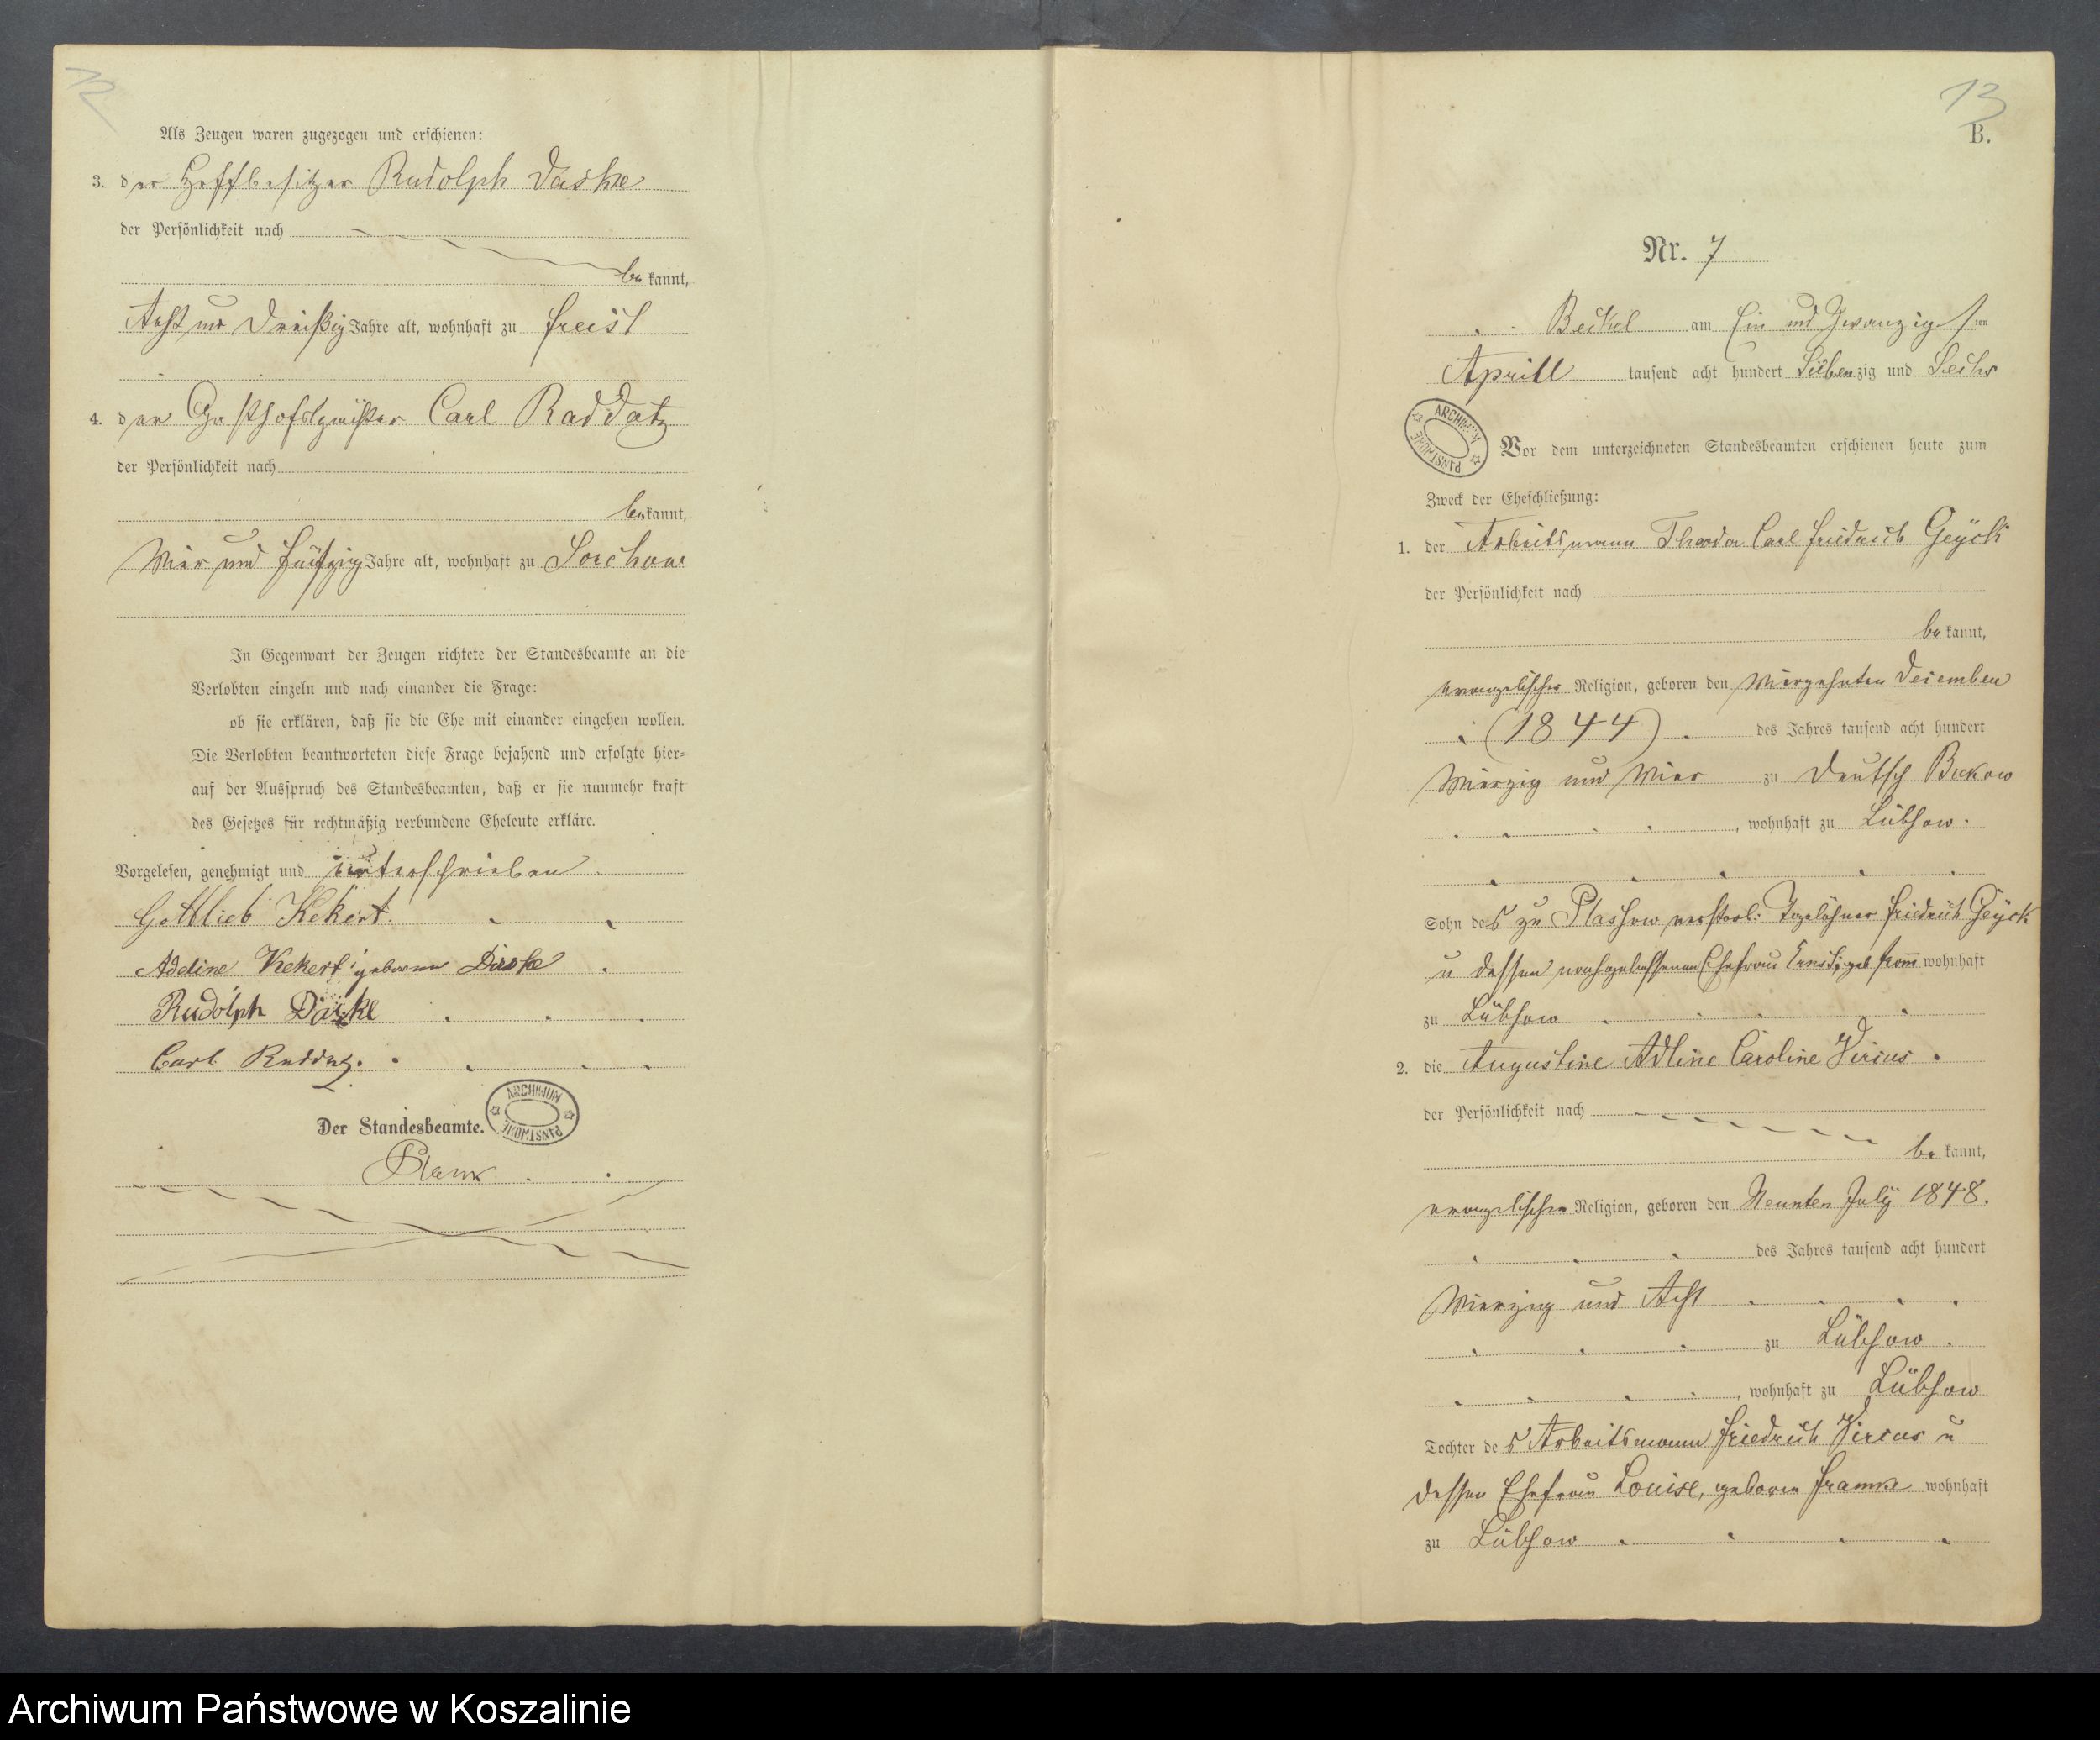 12
Als Zeugen waren zugezogen und erschienen:
3. der Hoffbesitzer Rudolph Daske
der Persönlichkeit nach
bekannt,
Acht und Dreißig Jahre alt, wohnhaft zu Freist
4. der Gasthofbesitzer Carl Raddatz
der Persönlichkeit nach
bekannt,
Vier und Fünfzig Jahre alt, wohnhaft zu Sorchow
In Gegenwart der Zeugen richtete der Standesbeamte an die
Verlobten einzeln und nach einander die Frage:
ob sie erklären, daß sie die Ehe mit einander eingehen wollen.
Die Verlobten beantworteten diese Frage bejahend und erfolgte hier-
auf der Ausspruch des Standesbeamten, daß er sie nunmehr kraft
des Gesetzes für rechtmäßig verbundene Eheleute erkläre.
Vorgelesen, genehmigt und unterschrieben
Gottlieb Kekert.
Adeline Kekert geborene Daske
Rudolph Daske
Carl Raddatz.
Der Standesbeamte.
ARCHIWUM PAŃSTWOWE
13
B.
Nr. 7
Beckel am Ein und Zwanzigsten
Aprill tausend acht hundert Siebenzig und Sechs
ARCHIWUM PAŃSTWOWE
Vor dem unterzeichneten Standesbeamten erschienen heute zum
Zweck der Eheschließung:
1. der Arbeitsmann Theodor Carl Friedrich Geyck
der Persönlichkeit nach
bekannt,
evangelischer Religion, geboren den Vierzehnten December
(1844) des Jahres tausend acht hundert
Vierzig und Vier zu Deutsch Buckow
, wohnhaft zu Lübzow.
Sohn des zu Plassow verstorb: Tagelöhner Friedrich Geyck
u dessen nachgelassenen Ehefrau geb wohnhaft
zu Lübzow
2. die Augustine Adline Caroline Vircus.
der Persönlichkeit nach
bekannt,
evangelischen Religion, geboren den Neunten July 1848.
des Jahres tausend acht hundert
Vierzig und Acht
zu Lübzow.
, wohnhaft zu Lübzow
Tochter des Arbeitsmann Friedrich Vircus u
dessen Ehefrau Louise, geboren wohnhaft
zu Lübzow
Archiwum Państwowe w Koszalinie